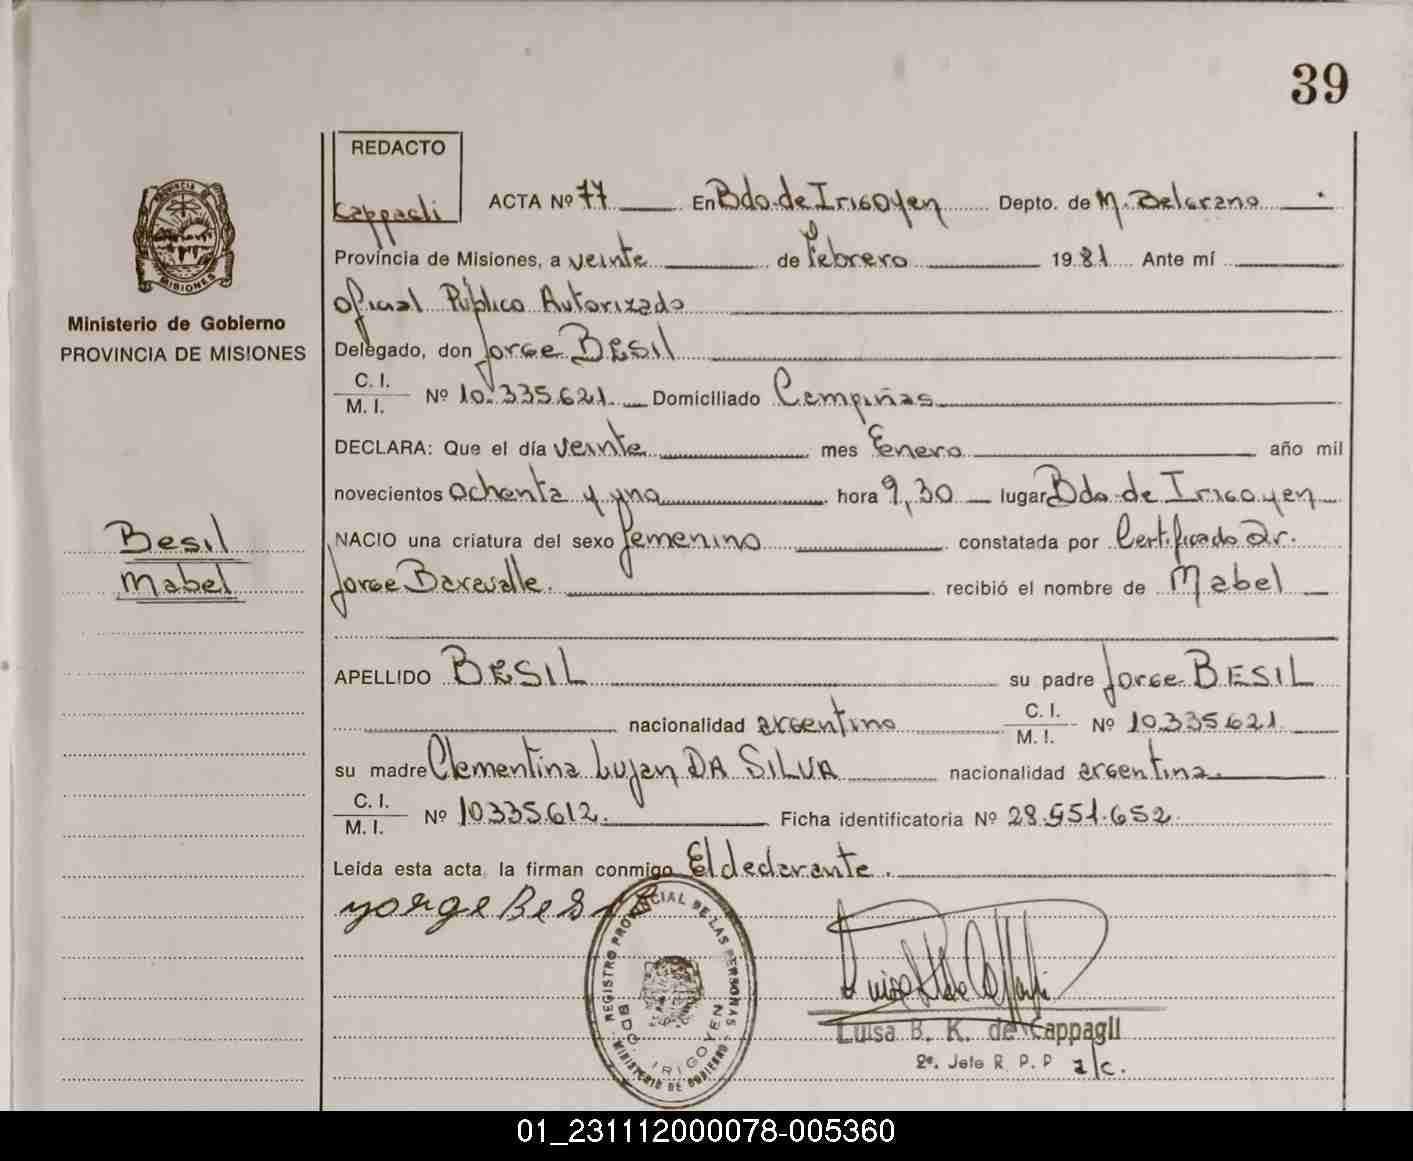 39
REDACTO
Cappagli
ACTA Nº 77 En Bdo. de Irigoyen Depto. de M. Belgrano
Provincia de Misiones, a veinte de Febrero 1981 Ante mí
Oficial Público Autorizado
Delegado, don Jorge BESIL
C. I.
M. I. Nº 10.335.621. Domiciliado Campiñas
DECLARA: Que el día veinte mes Enero año mil
novecientos ochenta y uno hora 9,30 lugar Bdo de Irigoyen
NACIO una criatura del sexo femenino constatada por Certificado Dr.
Jorge recibió el nombre de Mabel
APELLIDO BESIL su padre Jorge BESIL
nacionalidad argentino C. I.
M. I. Nº 10.335.621.
su madre Clementina Lujan DA SILVA nacionalidad argentina.
C. I.
M. I. Nº 10335.612. Ficha identificatoria Nº 28.551.652
Leída esta acta, la firman conmigo El declarante.
yorge Besil
PROVINCIA
MISIONES
Ministerio de Gobierno
PROVINCIA DE MISIONES
Besil
Mabel
REGISTRO PROVINCIAL DE LAS PERSONAS
BDO. IRIGOYEN
MINISTERIO DE GOBIERNO
Luisa B. K. de Cappagli
2º. Jefe R. P. P a/c.
01_231112000078-005360